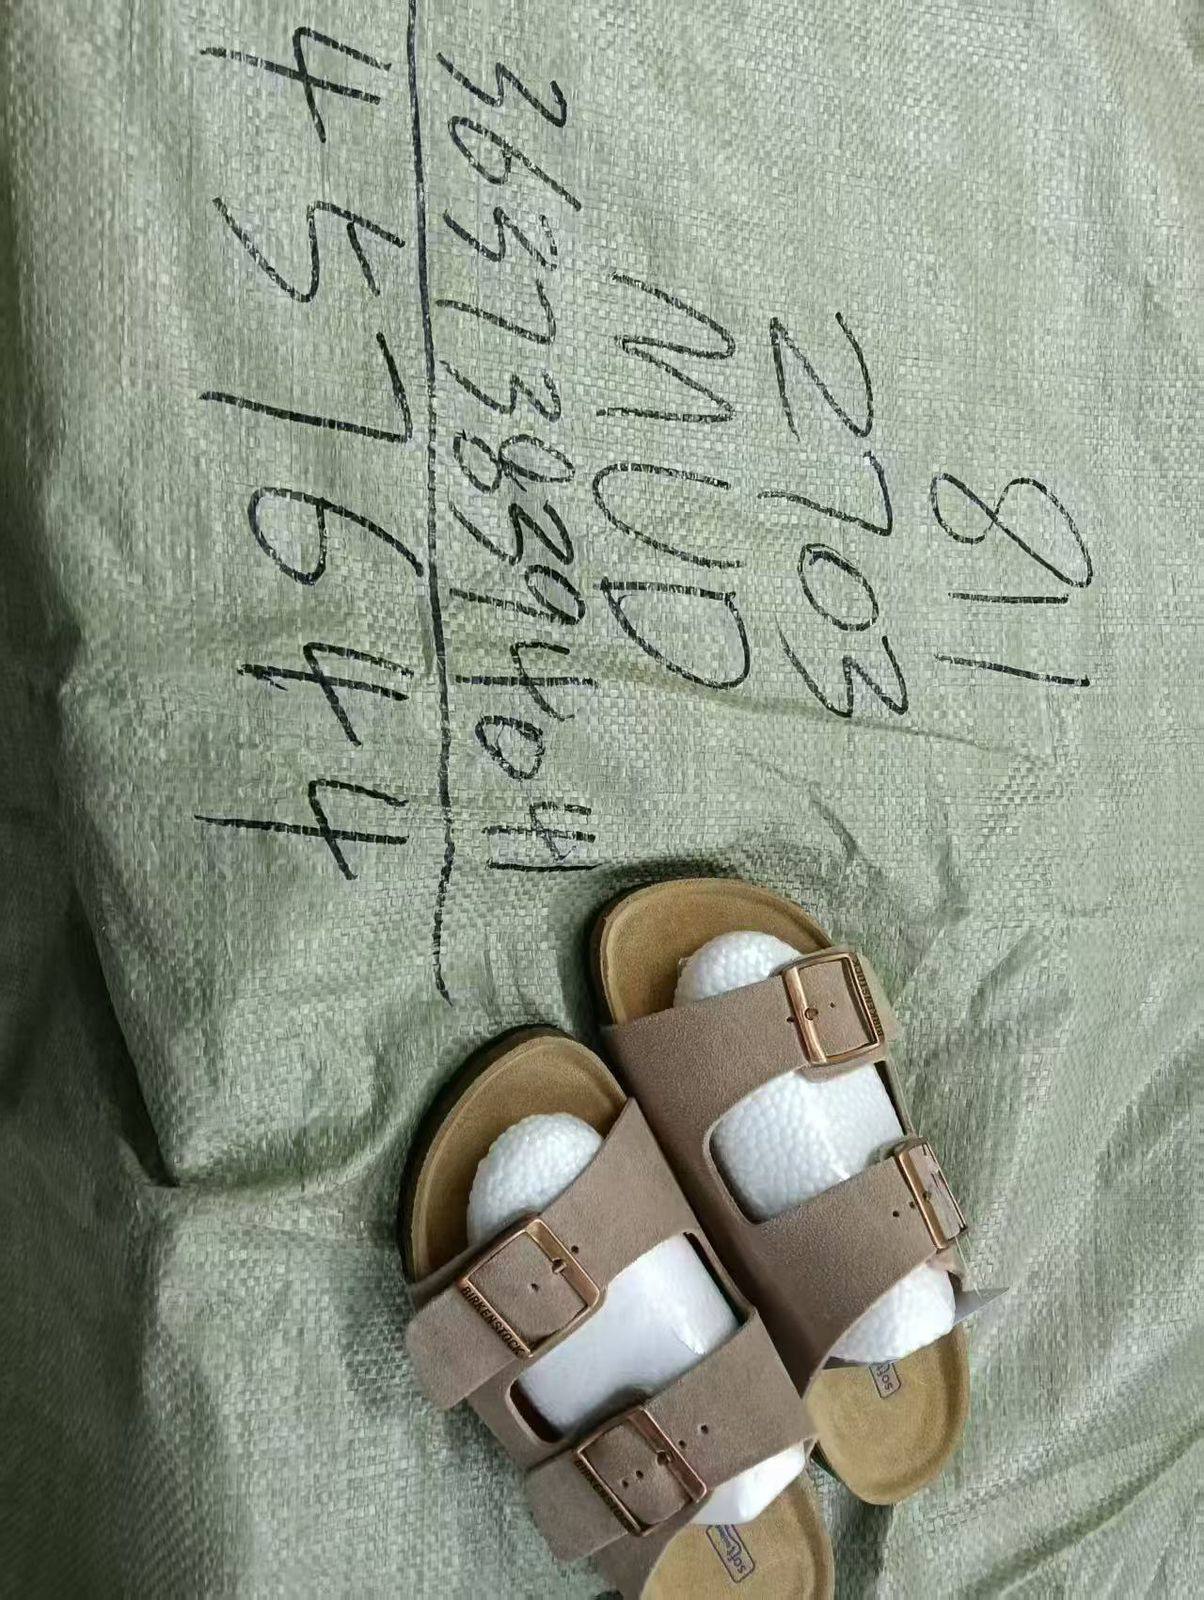 811
2703
MUD
36 37 38 39 40 41
4 5 7 6 4 4
BIRKENSTOCK
BIRKENSTOCK
BIRKENSTOCK
soft
soft